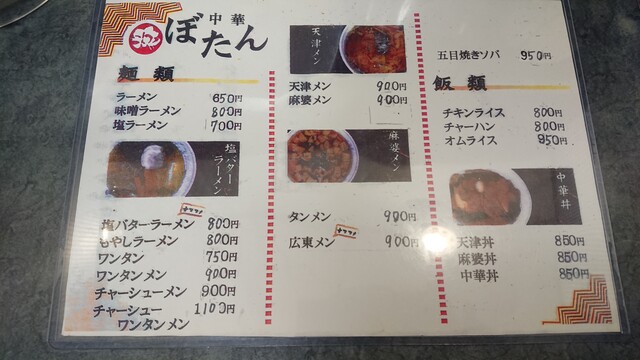 中華
ぼたん
麺類
ラーメン 650円
味噌ラーメン 800円
塩ラーメン 700円
塩バターラーメン
塩バターラーメン 800円
もやしラーメン 800円
ワンタン 750円
ワンタンメン 900円
チャーシューメン 900円
チャーシュー 1100円
ワンタンメン
天津メン
天津メン 900円
麻婆メン 900円
麻婆メン
タンメン 900円
広東メン 900円
五目焼きソバ 950円
飯類
チキンライス 800円
チャーハン 800円
オムライス 850円
中華丼
天津丼 850円
麻婆丼 850円
中華丼 850円